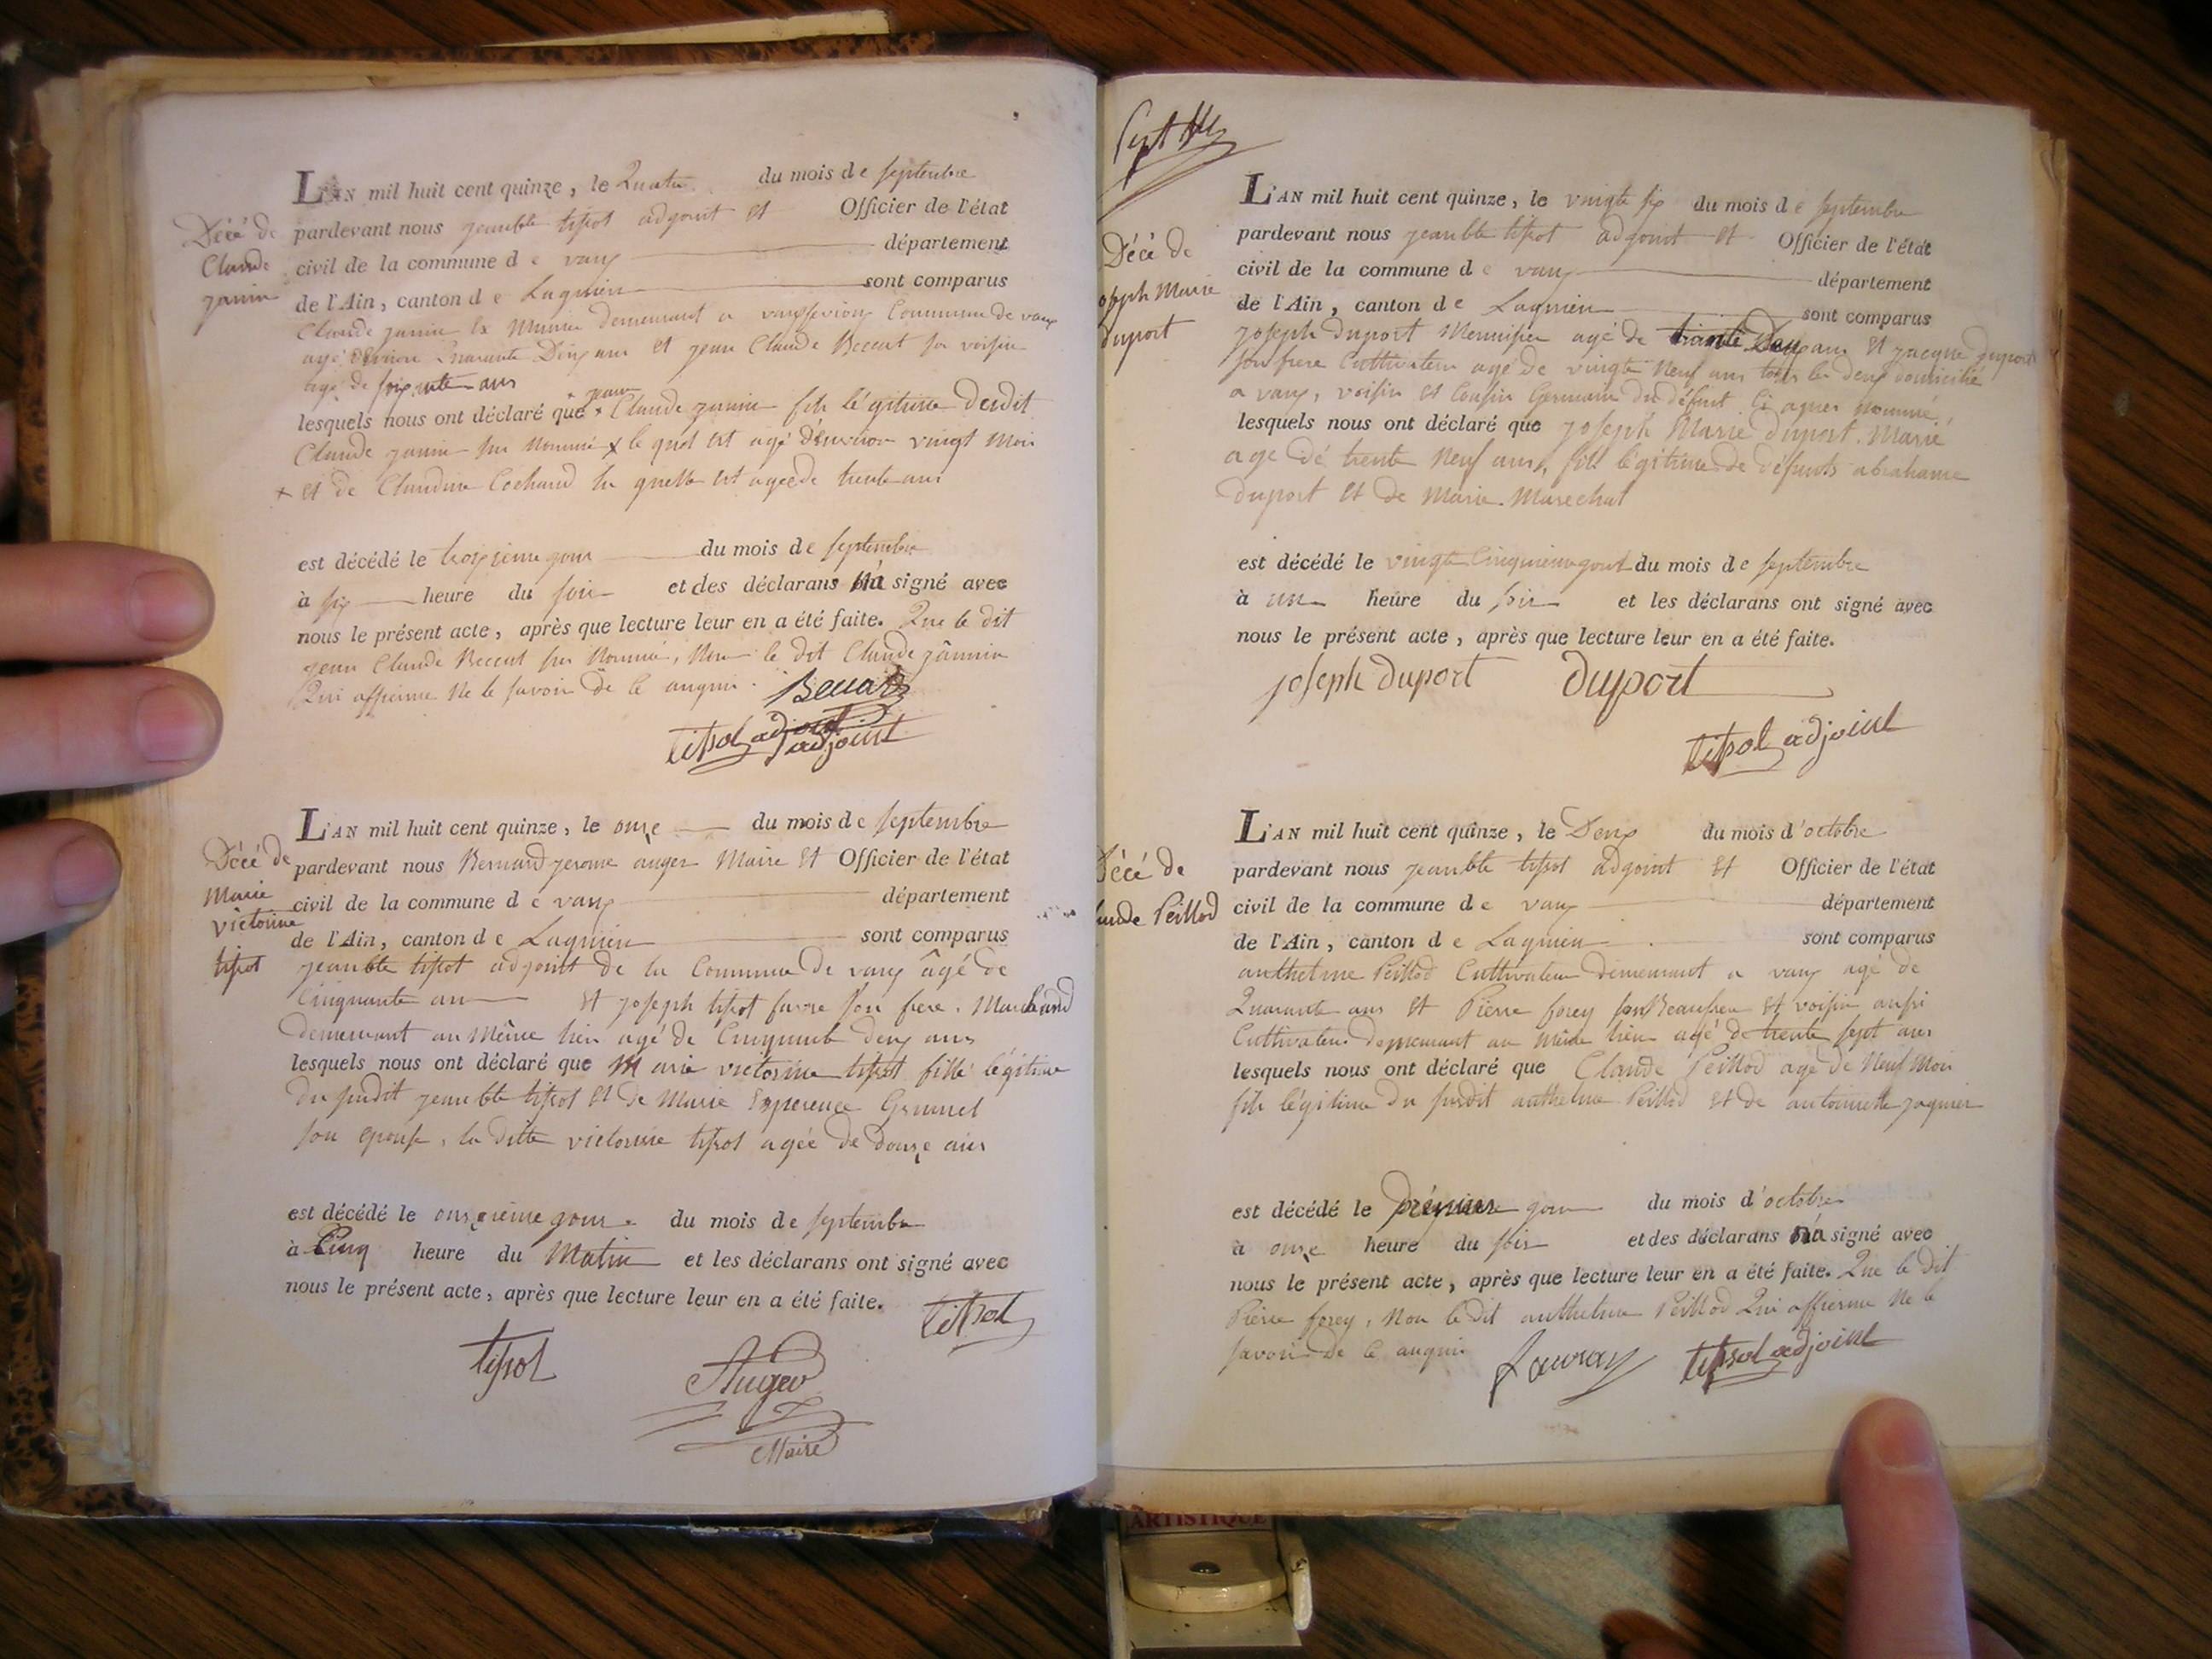 L'AN mil huit cent quinze, le Quatre du mois de septembre
pardevant nous jeanbte tissot adjoint et Officier de l'état
civil de la commune de vaux département
de l'Ain, canton de Lagnieu sont comparus
Décé de
Claude
janin
Claude janin demeurant a Commune de vaux
agé d'environ quarante Deux ans et jean Claude son voisin
agé de soixante ans
lesquels nous ont déclaré que x jean Claude janin fils légitime dudit
Claude janin sus nommé x le quel est agé d'environ vingt mois
x et de Claudine Cochand la quelle est agée de trente ans
est décédé le troisieme jour du mois de septembre
à six heure du soir et des déclarans n'a signé avec
nous le présent acte, après que lecture leur en a été faite. Que le dit
jean Claude sus nommé, non le dit Claude jânnin
Qui affierme ne le savoir de ce enquis.
tissot adjoint
adjoint
L'AN mil huit cent quinze, le onze du mois de septembre
pardevant nous Bernard jerome auger Maire et Officier de l'état
civil de la commune de vaux département
de l'Ain, canton de Lagnieu sont comparus
Décé de
Marie
victorine
tissot
jeanbte tissot adjoint de la Commune de vaux âgé de
Cinquante ans et joseph tissot favre son frere, Marchand
demeurant au même lieu agé de Cinquante deux ans
lesquels nous ont déclaré que Marie victorine tissot fille légitime
du susdit jeanbte tissot et de Marie Esperence
son epouse, la ditte victorine tissot agée de douze ans
est décédé le onzieme jour du mois de septembre
à Cinq heure du Matin et les déclarans ont signé avec
nous le présent acte, après que lecture leur en a été faite.
tissot
tissot
Auger
Maire
L'AN mil huit cent quinze, le vingte six du mois de septembre
pardevant nous jeanbte tissot adjoint et Officier de l'état
civil de la commune de vaux département
de l'Ain, canton de Lagnieu sont comparus
Décé de
oseph Marie
duport
joseph duport Menuisier agé de trante Deux ans et jacque duport
son frere Cultivateur agé de vingte neuf ans tous les deux domicilié
a vaux, voisin et Cousin Germain du défunt Ci apres nommé,
lesquels nous ont déclaré que joseph Marie duport. Marié
age dé trente neuf ans, fils légitime de défunts abrahame
duport et de Marie Marechal
est décédé le vingte Cinquieme jour du mois de septembre
à une heure du soir et les déclarans ont signé avec
nous le présent acte, après que lecture leur en a été faite.
joseph duport duport
tissot adjoint
L'AN mil huit cent quinze, le Deux du mois d'octobre
pardevant nous jeanbte tissot adjoint et Officier de l'état
civil de la commune de vaux département
de l'Ain, canton de Lagnieu sont comparus
Décé de
aude Peillod
anthelme Peillod Cultivateur demeurant a vaux agé de
Quarante ans et Pierre forey son Beaufrere et voisin aussi
Cultivateur demeurant au même lieu agé de trente sept ans
lesquels nous ont déclaré que Claude Peillod agé de Neuf Mois
fils légitime du susdit anthelme Peillod et de antoinette
est décédé le prémier jour du mois d'octobre
à onze heure du soir et des déclarans n'a signé avec
nous le présent acte, après que lecture leur en a été faite. Que le dit
Pierre forey, Non le dit anthelme Peillod Qui affierme Ne le
savoir de ce enquis
tissot adjoint
ARTISTIQUE